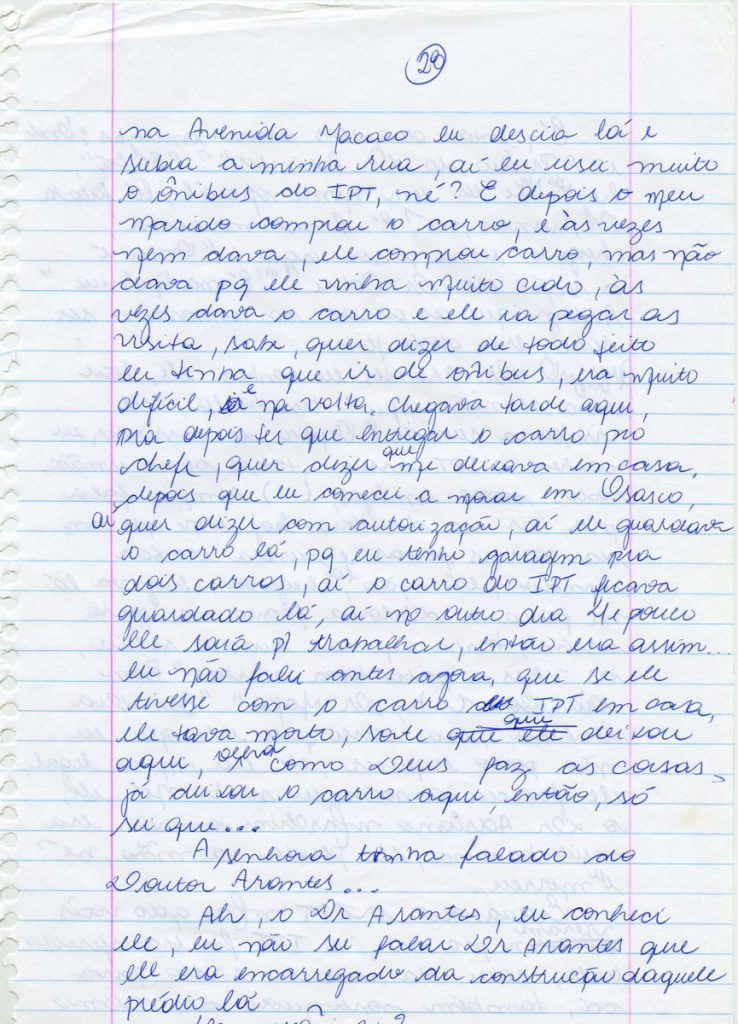 29
na Avenida Macaco eu descia lá e
subia a minha rua, aí eu usei muito
o ônibus do IPT, né? E depois o meu
marido comprou o carro, e às vezes
nem dava, ele comprou carro, mas não
dava pq ele vinha muito cedo, às
vezes dava o carro e ele ia pegar as
visita, sabe, quer dizer de todo jeito
eu tinha que ir de ônibus, era muito
difícil, e na volta. Chegava tarde aqui,
pra depois ter que entregar o carro pro
chefe, quer dizer que me deixava em casa,
depois que eu comecei a morar em Osasco,
aí quer dizer com autorização, aí ele guardava
o carro lá, pq eu tenho garagem pra
dois carros, aí o carro do IPT ficava
guardado lá, aí no outro dia 4 e pouco
ele saía p/ trabalhar, então era assim...
eu não falei antes agora, que se ele
tivesse com o carro do IPT em casa,
ele tava morto, sorte que deixou
aqui, como Deus faz as coisas
já deixou o carro aqui, então, só
sei que...
A senhora tinha falado do
Doutor Arantes...
Ah, o Dr Arantes, eu conheci
ele, eu não sei falar Dr Arantes que
ele era encarregado da construção daquele
prédio lá